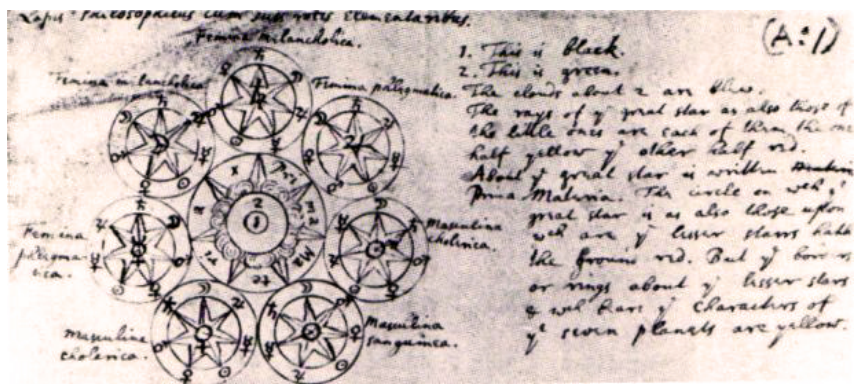 Lapis Philosophicus cum suis rotis elementaribus.
(A:1)
Femina melancholica.
Femina melancholica
Femina phlegmatica.
Femina phlegmatica.
Masculina cholerica.
masculina cholerica.
Masculina sanguinea.
Prima Materia
1
2
1. This is black.
2. This is green.
The clouds about 2 are blew.
The rays of yᵉ great star as also those of
the little ones are each of them the one
half yellow yᵉ other half red.
About yᵉ great star is written
Prima Materia. The circle on wch yᵉ
great star is as also those upon
wch are yᵉ lesser starrs hath
the ground red. But yᵉ borders
or rings about yᵉ lesser stars
& wch bears yᵉ characters of
yᵉ seven planets are yellow.